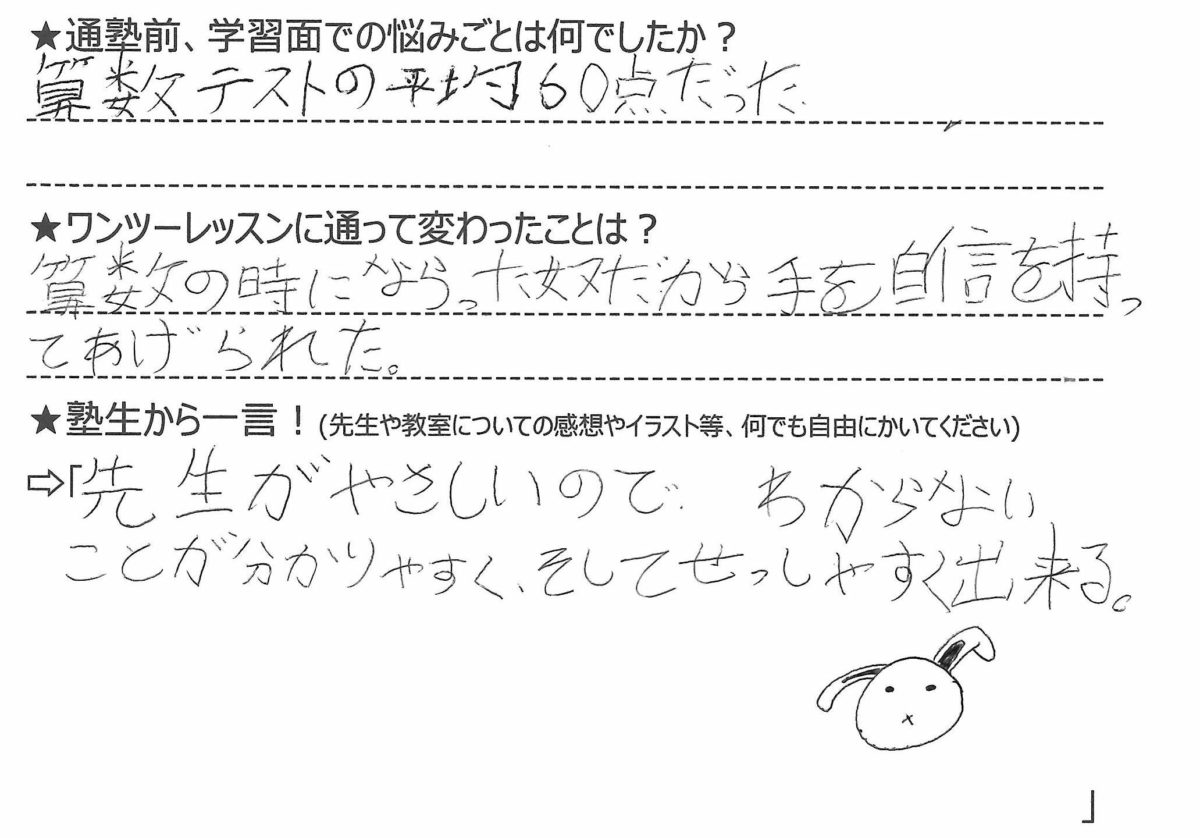 ★通塾前、学習面での悩みごとは何でしたか？
算数テストの平均60点だった
★ワンツーレッスンに通って変わったことは？
算数の時にならった奴だから手を自信を持っ
てあげられた。
★塾生から一言！(先生や教室についての感想やイラスト等、何でも自由にかいてください)
⇨「先生がやさしいので、わからない
ことが分かりやすく、そしてせっしやすく出来る。
」